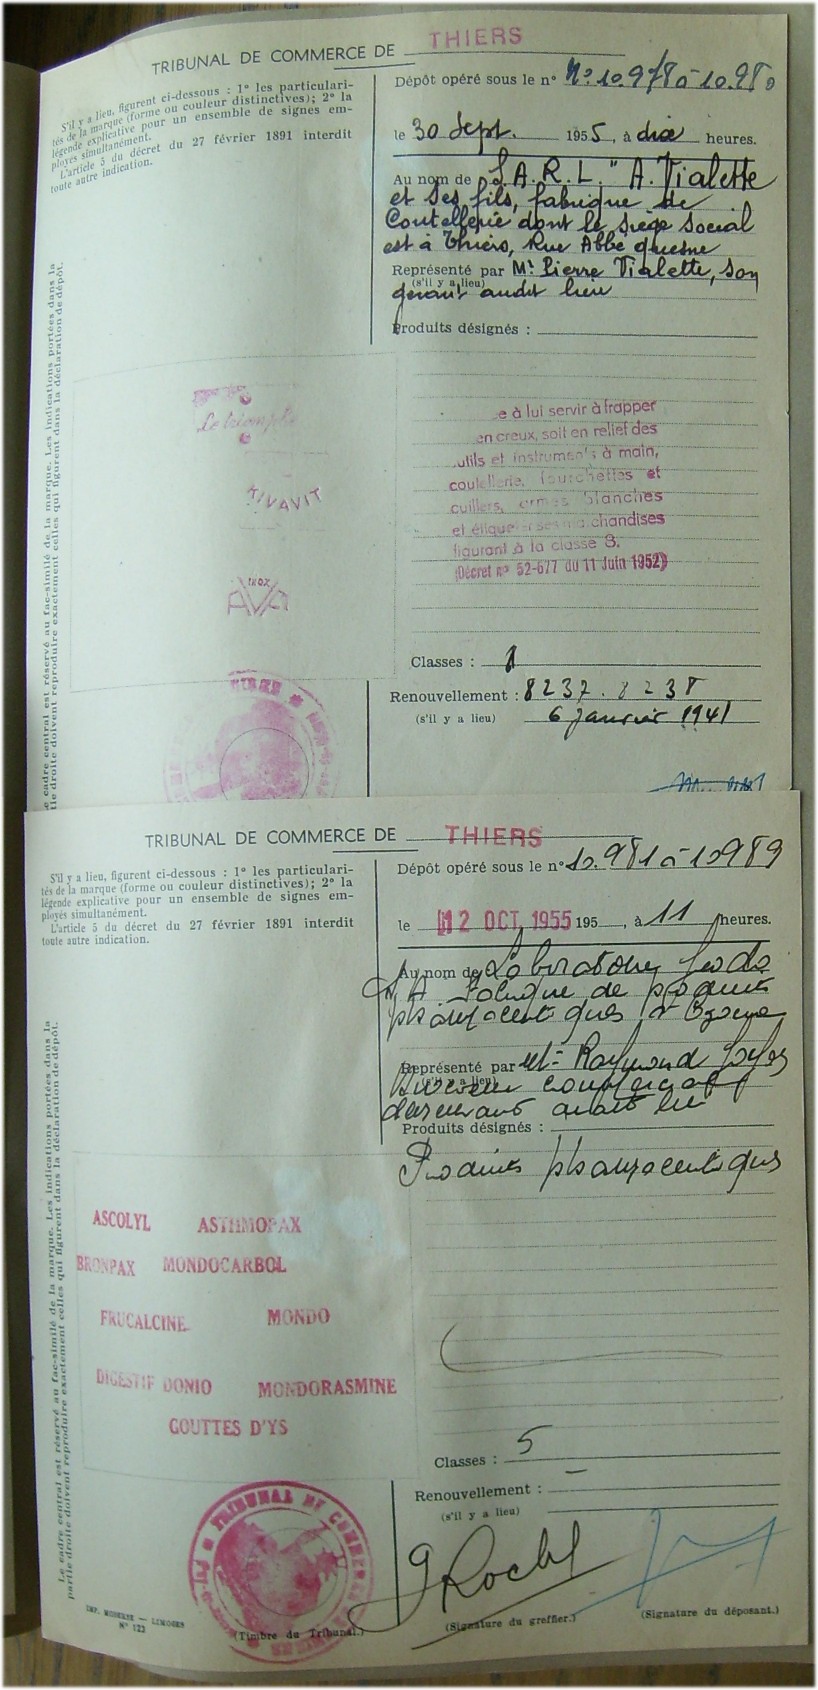 TRIBUNAL DE COMMERCE DE THIERS
S'il y a lieu, figurent ci-dessous : 1° les particulari-
tés de la marque (forme ou couleur distinctives); 2° la
légende explicative pour un ensemble de signes em-
ployés simultanément.
L'article 5 du décret du 27 février 1891 interdit
toute autre indication.
Dépôt opéré sous le n° N° 10.978 à 10.980
le 30 Sept. 1955, à dix heures.
Au nom de S.A.R.L. "A. Vialette
et ses fils, fabrique de
Coutellerie dont le siège social
est à Thiers, Rue Abbé Guesne
Représenté par Mr Pierre Vialette, son
(s'il y a lieu)
gérant audit lieu
Produits désignés :
Le cadre central est réservé au fac-similé de la marque. Les indications portées dans la
partie droite doivent reproduire exactement celles qui figurent dans la déclaration de dépôt.
Le triomphe
KIVAVIT
INOX
AVA
e à lui servir à frapper
en creux, soit en relief des
utils et instruments à main,
coutellerie, fourchettes et
cuillers, armes blanches
et étiqueter ses marchandises
figurant à la classe 8.
(Décret n° 52-677 du 11 Juin 1952)
Classes : 1
Renouvellement : 8237. 8238
(s'il y a lieu) 6 janvier 1941
TRIBUNAL DE COMMERCE DE THIERS
S'il y a lieu, figurent ci-dessous : 1° les particulari-
tés de la marque (forme ou couleur distinctives); 2° la
légende explicative pour un ensemble de signes em-
ployés simultanément.
L'article 5 du décret du 27 février 1891 interdit
toute autre indication.
Dépôt opéré sous le n° 10.981 à 10989
le 12 OCT. 1955 195 , à 11 heures.
Au nom de Laboratoires
S.A. Fabrique de produits
pharmaceutiques à
Représenté par Mr Raymond
(s'il y a lieu)
Directeur commercial
demeurant audit lieu
Produits désignés :
Produits pharmaceutiques
Le cadre central est réservé au fac-similé de la marque. Les indications portées dans la
partie droite doivent reproduire exactement celles qui figurent dans la déclaration de dépôt.
ASCOLYL ASTHMOPAX
BRONPAX MONDOCARBOL
FRUCALCINE MONDO
DIGESTIF DONIO MONDORASMINE
GOUTTES D'YS
Classes : 5
Renouvellement : —
(s'il y a lieu)
TRIBUNAL DE COMMERCE
IMP. MODERNE — LIMOGES
N° 123
(Timbre du Tribunal.)
(Signature du greffier.)
(Signature du déposant.)